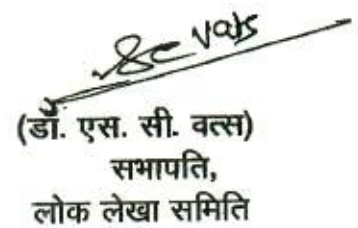 Sc Vats
(डॉ. एस. सी. वत्स)
सभापति,
लोक लेखा समिति